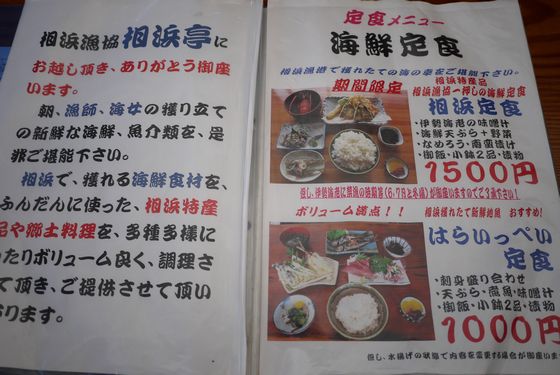 相浜漁協 相浜亭に
お越し頂き、ありがとう御座
います。
朝、漁師、海女の獲り立て
の新鮮な海鮮、魚介類を、是
非ご堪能下さい。
相浜で、獲れる海鮮食材を、
ふんだんに使った、相浜特産
品や郷土料理を、多種多様に
たりボリューム良く、調理さ
て頂き、ご提供させて頂い
おります。
定食メニュー
海鮮定食
相浜漁港で獲れたての海の幸をご堪能下さい。
期間限定
相浜特産品
相浜漁協一押しの海鮮定食
相浜定食
・伊勢海老の味噌汁
・海鮮天ぷら+野菜
・なめろう・南蛮漬け
・御飯・小鉢2品・漬物
1500円
但し、伊勢海老に禁漁の時期等(6,7月と冬場)が御座いますのでご了承下さい!
ボリューム満点!!
相浜獲れたて新鮮地魚 おすすめ!
はらいっぺい
定食
・刺身盛り合わせ
・天ぷら・煮魚・味噌汁
・御飯・小鉢2品・漬物
1000円
但し、水揚げの状態で内容を変更する場合が御座いま